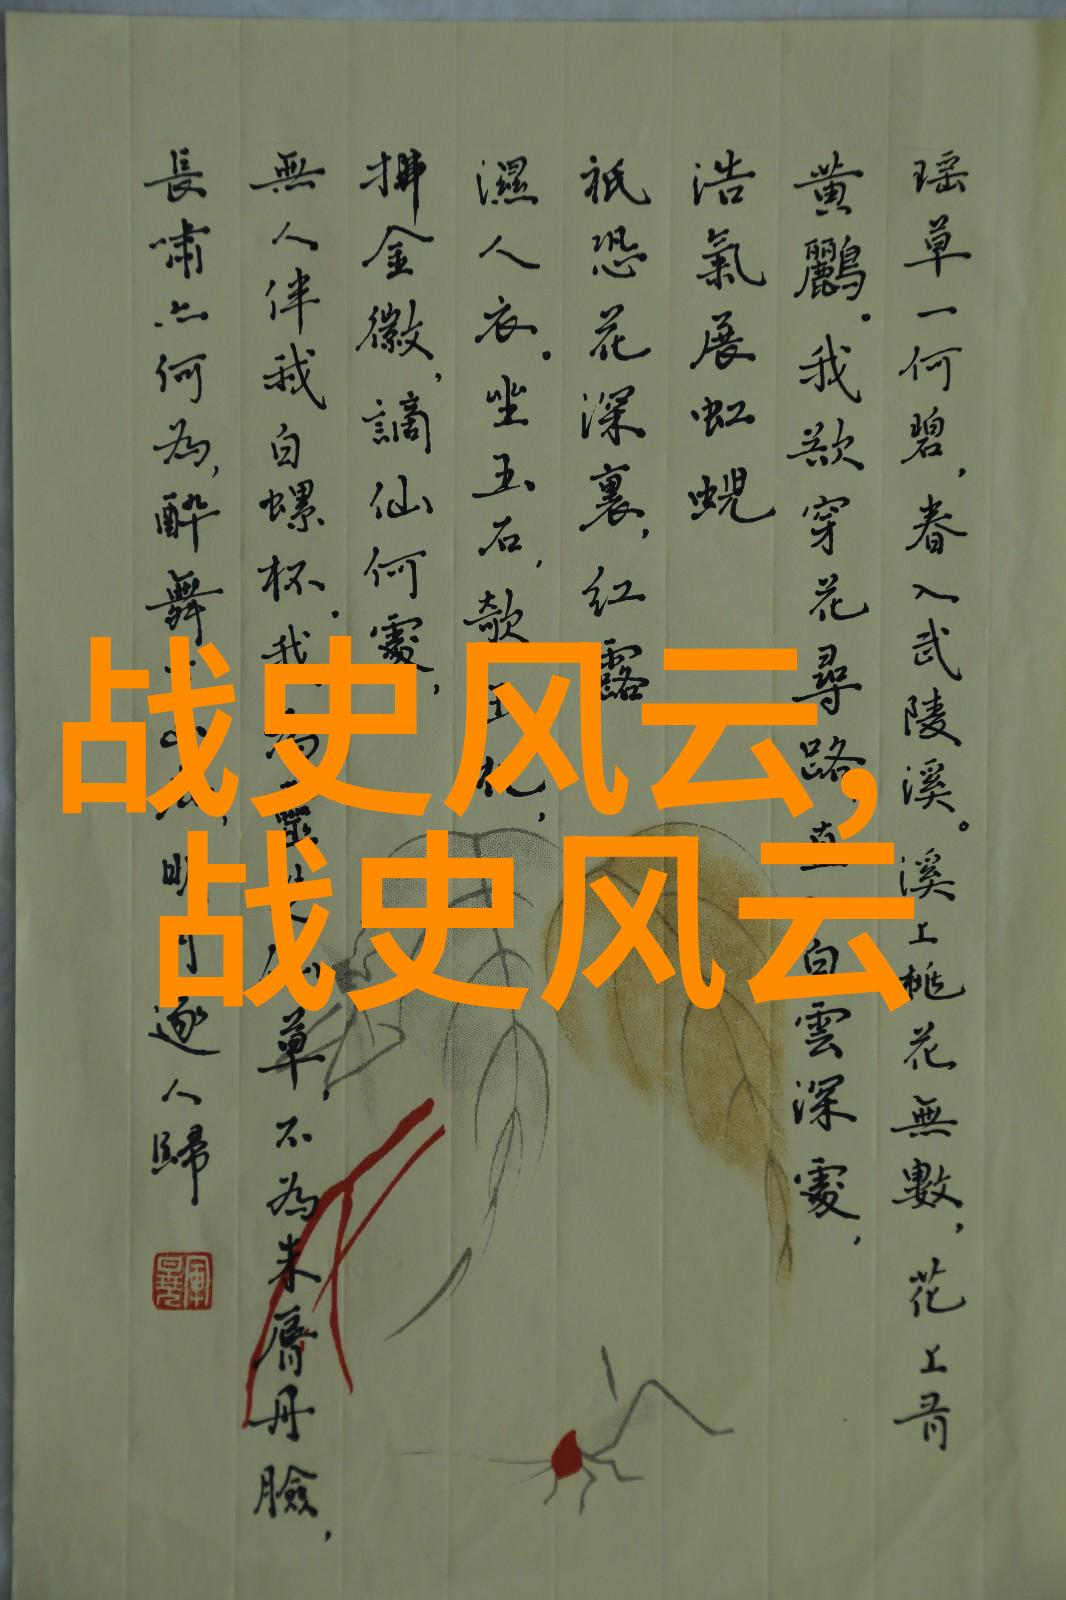 战史风云,
战史风云
瑶草一何碧，春入武陵溪。溪上桃花無數，花上有
黄鸝。我欲穿花尋路，直白雲深處，
浩氣展虹蜺
祇恐花深裏，红露
濕人衣。坐玉石，欹玉，
拂金徽，謫仙何處，
無人伴我白螺杯。我為靈草，不為朱脣丹臉，
長嘯亦何為，醉舞山，明月逐人歸